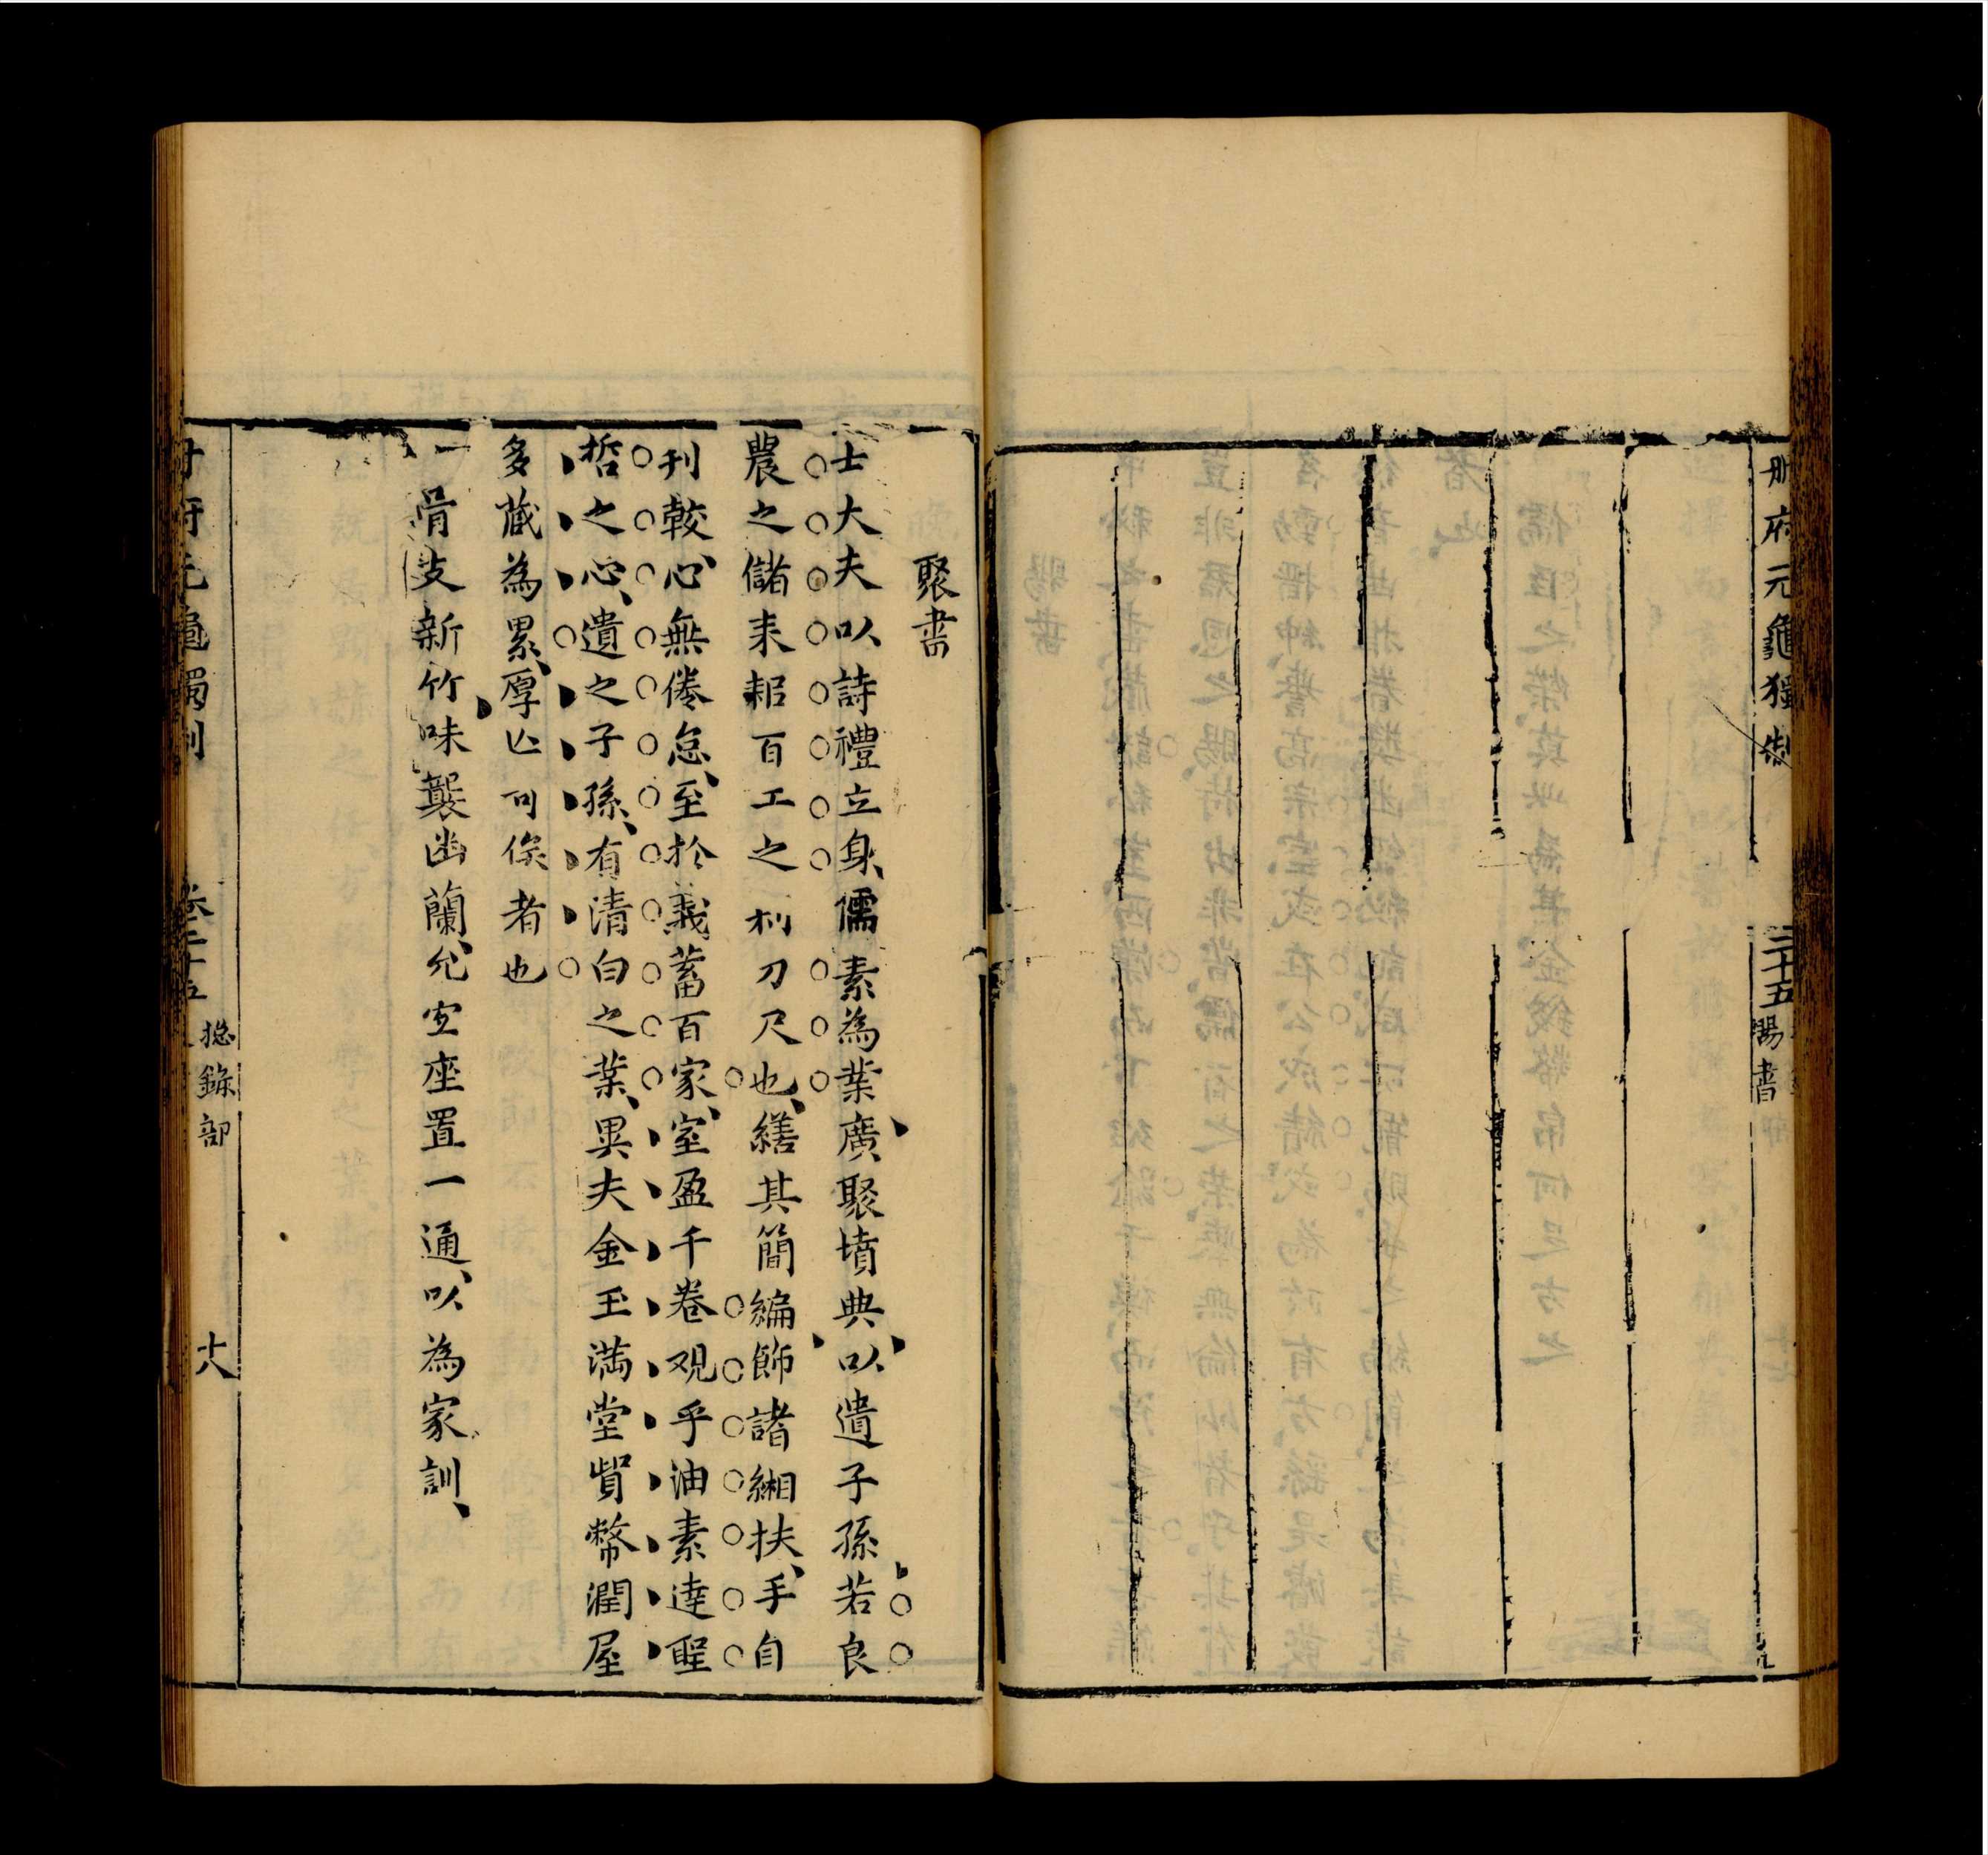 冊府元龜獨制
二十五
賜書
聚書
士大夫以詩禮立身、儒素為業、廣聚墳典、以遺子孫、若良
農之儲耒耜百工之利刀尺也、繕其簡編、飾諸緗帙、手自
刊較、心無倦怠、至於義蓄百家、室盈千卷、观乎油素、達聖
哲之心、遺之子孫、有清白之業、異夫金玉滿堂貲幣潤屋
多藏為累、厚亾可俟者也
一骨支新竹、味襲幽蘭、允宜座置一通、以為家訓、
冊府元龜獨制
卷二十五
摠錄部
十八